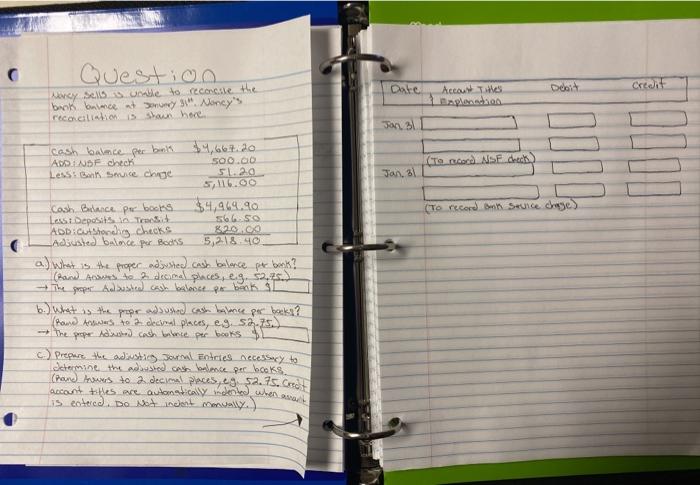 Question
Nancy Sells is unable to reconcile the
bank balance at January 31st. Nancy's
reconciliation is shown here.
Cash balance per bank $4,667.20
ADD: NSF check 500.00
Less: Bank Service charge 51.20
5,116.00
Cash Balance per books $4,964.90
Less: Deposits in Transit 566.50
ADD: Outstanding checks 820.00
Adjusted balance per Books 5,218.40
a.) What is the proper adjusted cash balance per bank?
(Round Answers to 2 decimal places, e.g. 52.75.)
→ The proper Adjusted cash balance per bank $
b.) What is the proper adjusted cash balance per books?
(Round Answers to 2 decimal places, e.g. 52.75.)
→ The proper Adjusted cash balance per books $
c.) Prepare the adjusting Journal Entries necessary to
determine the adjusted cash balance per books.
(Round Answers to 2 decimal places, e.g. 52.75. Credit
account titles are automatically indented when amount
is entered. Do Not indent manually.)
Date Account Titles Debit Credit
& Explanation
Jan. 31
(To record NSF check)
Jan. 31
(To record Bank Service charge)